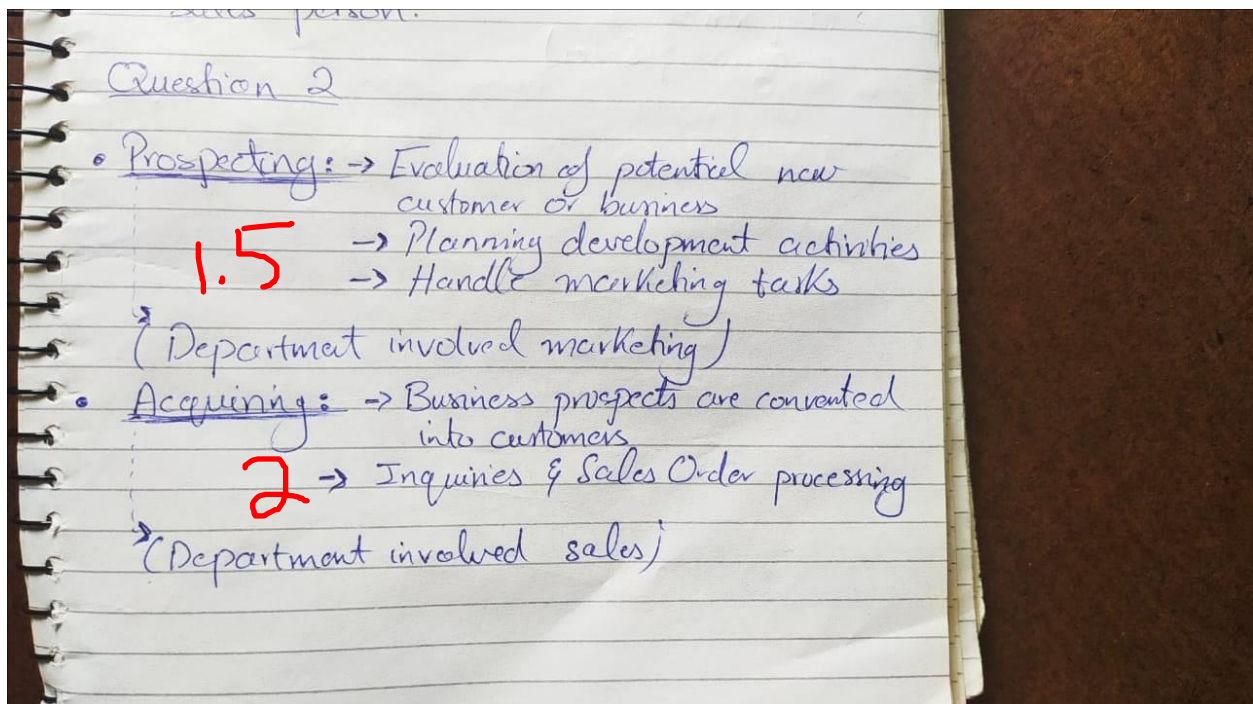 sales person.
Question 2
• Prospecting: -> Evaluation of potential new
customer or business
1.5 -> Planning development activities
-> Handle marketing tasks
(Department involved marketing)
• Acquiring: -> Business prospects are convented
into customers
2 -> Inquiries & Sales Order processing
(Department involved sales)